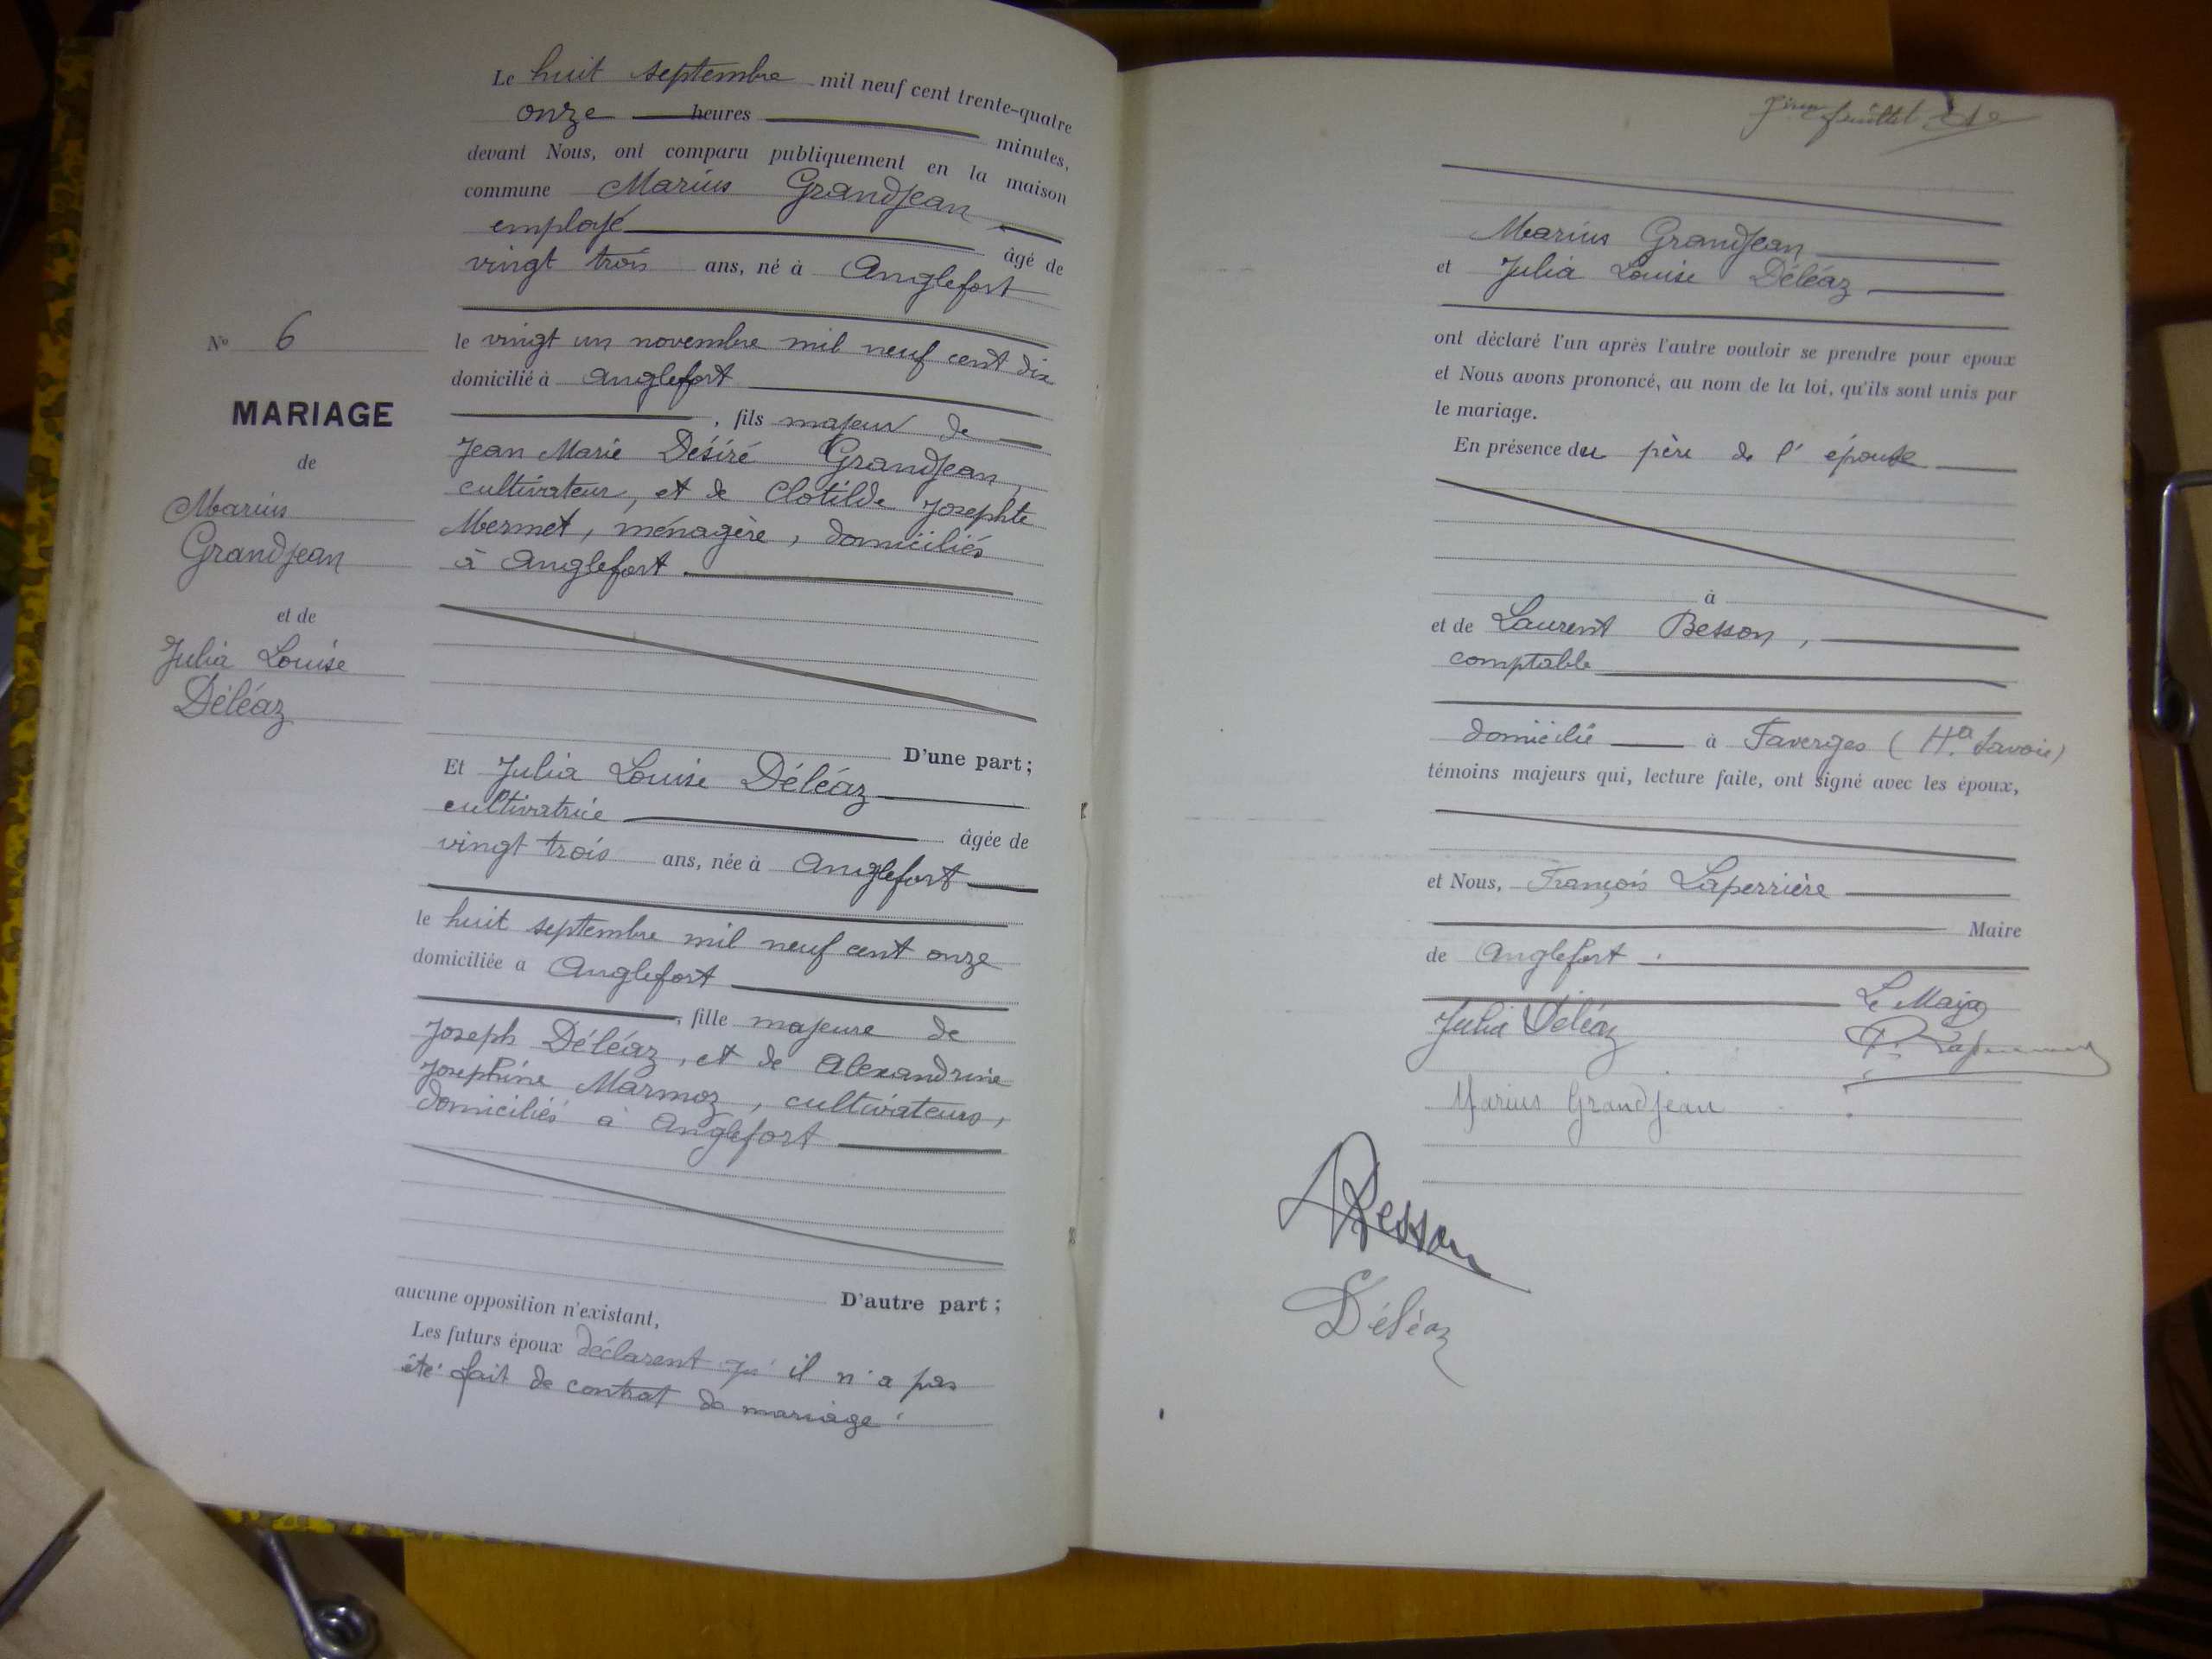 Le huit septembre mil neuf cent trente-quatre
onze heures minutes,
devant Nous, ont comparu publiquement en la maison
commune Marius Grandjean
employé âgé de
vingt trois ans, né à Anglefort
le vingt un novembre mil neuf cent dix
domicilié à Anglefort
, fils majeur de
Jean Marie Désiré Grandjean,
cultivateur, et de Clotilde Josephte
Mermet, ménagère, domiciliés
à Anglefort.
D'une part;
Et Julia Louise Déléaz
cultivatrice âgée de
vingt trois ans, née à Anglefort
le huit septembre mil neuf cent onze
domiciliée à Anglefort
, fille majeure de
Joseph Déléaz, et de Alexandrine
Josephine Marmoz, cultivateurs,
domiciliés à Anglefort
D'autre part;
aucune opposition n'existant,
Les futurs époux déclarent qu'il n'a pas
été fait de contrat de mariage.
No 6
MARIAGE
de
Marius
Grandjean
et de
Julia Louise
Déléaz
feuillet
Marius Grandjean
et Julia Louise Déléaz
ont déclaré l'un après l'autre vouloir se prendre pour époux
et Nous avons prononcé, au nom de la loi, qu'ils sont unis par
le mariage.
En présence du père de l'épouse
à
et de Laurent Besson,
comptable
domicilié à Faverges (Hª Savoie)
témoins majeurs qui, lecture faite, ont signé avec les époux,
et Nous, François Laperrière
Maire
de Anglefort.
Le Maire
Julia Déléaz
Marius Grandjean
Besson
Déléaz